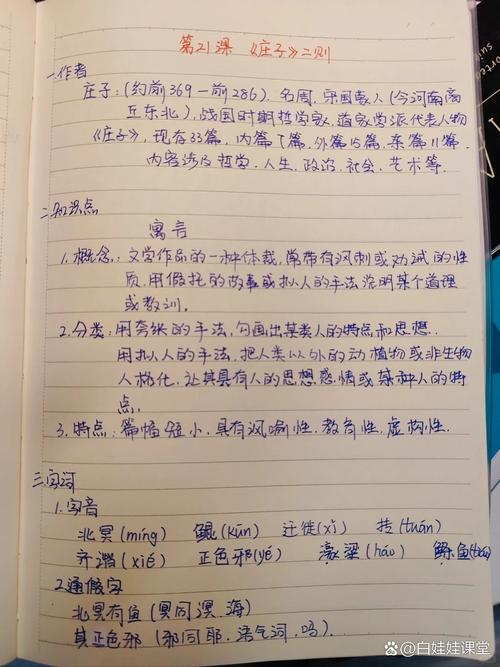 第21课 《庄子》二则
一.作者
庄子:(约前369—前286),名周,宋国蒙人(今河南商
丘东北),战国时期哲学家,道家学派代表人物
《庄子》,现存33篇,内篇7篇,外篇15篇,杂篇11篇.
内容涉及哲学、人生、政治、社会、艺术等.
二.知识点
寓言
1.概念:文学作品的一种体裁,常带有讽刺或劝诫的性
质,用假托的故事或拟人的手法说明某个道理
或教训。
2.分类:用夸张的手法,勾画出某类人的特点和思想.
用拟人的手法,把人类以外的动植物或非生物
人格化,让其具有人的思想感情或某种人的特
点.
3.特点:篇幅短小,具有讽喻性、教育性,虚构性.
三.字词
1.字音
北冥(míng) 鲲(kūn) 迁徙(xǐ) 抟(tuán)
齐谐(xié) 正色邪(yé) 濠梁(háo) 鲦鱼
2.通假字
北冥有鱼(冥同溟,海)
其正色邪(邪同耶.语气词,吗).
@白娃娃课堂